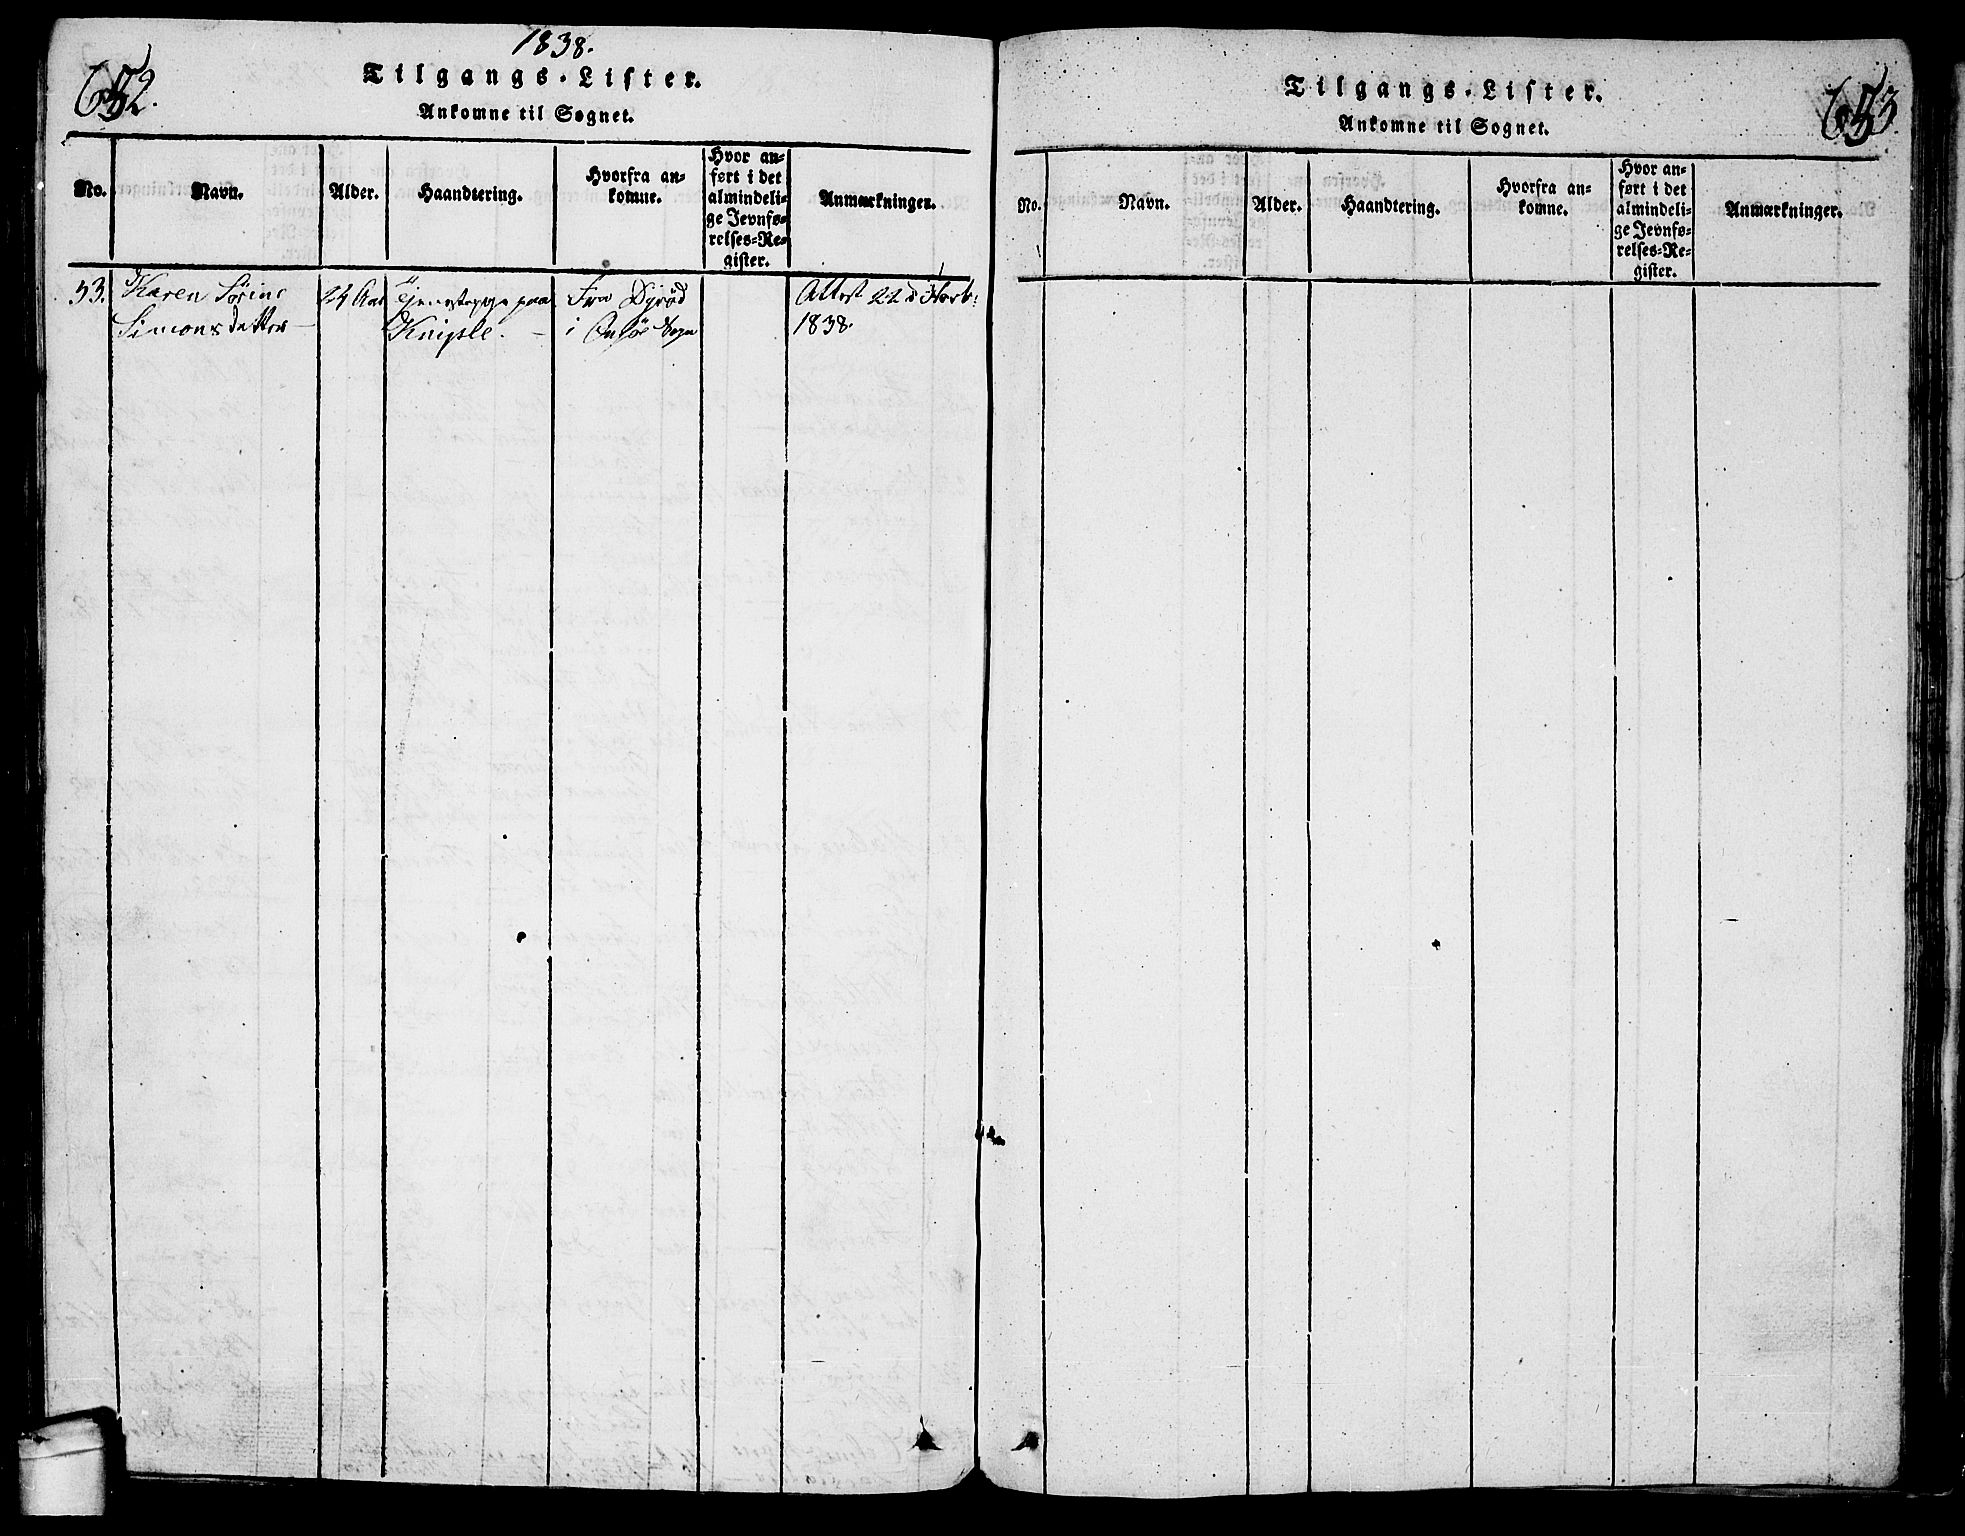 1838.
652.
Tilgangs-Lister.
Ankomne til Sognet.
No.
Navn.
Alder.
Haandtering.
Hvorfra an-
komne.
Hvor an-
ført i det
almindeli-
ge Jevnfø-
relses-Re-
gister.
Anmærkninger.
53.
Karen Sørine
Simonsdatter
24 Aar
Tjenestepige paa
Kniple.
Fra Dyrød
i Sogn
Attest 22 d
1838.
653.
Tilgangs-Lister.
Ankomne til Sognet.
No.
Navn.
Alder.
Haandtering.
Hvorfra an-
komne.
Hvor an-
ført i det
almindeli-
ge Jevnfø-
relses-Re-
gister.
Anmærkninger.